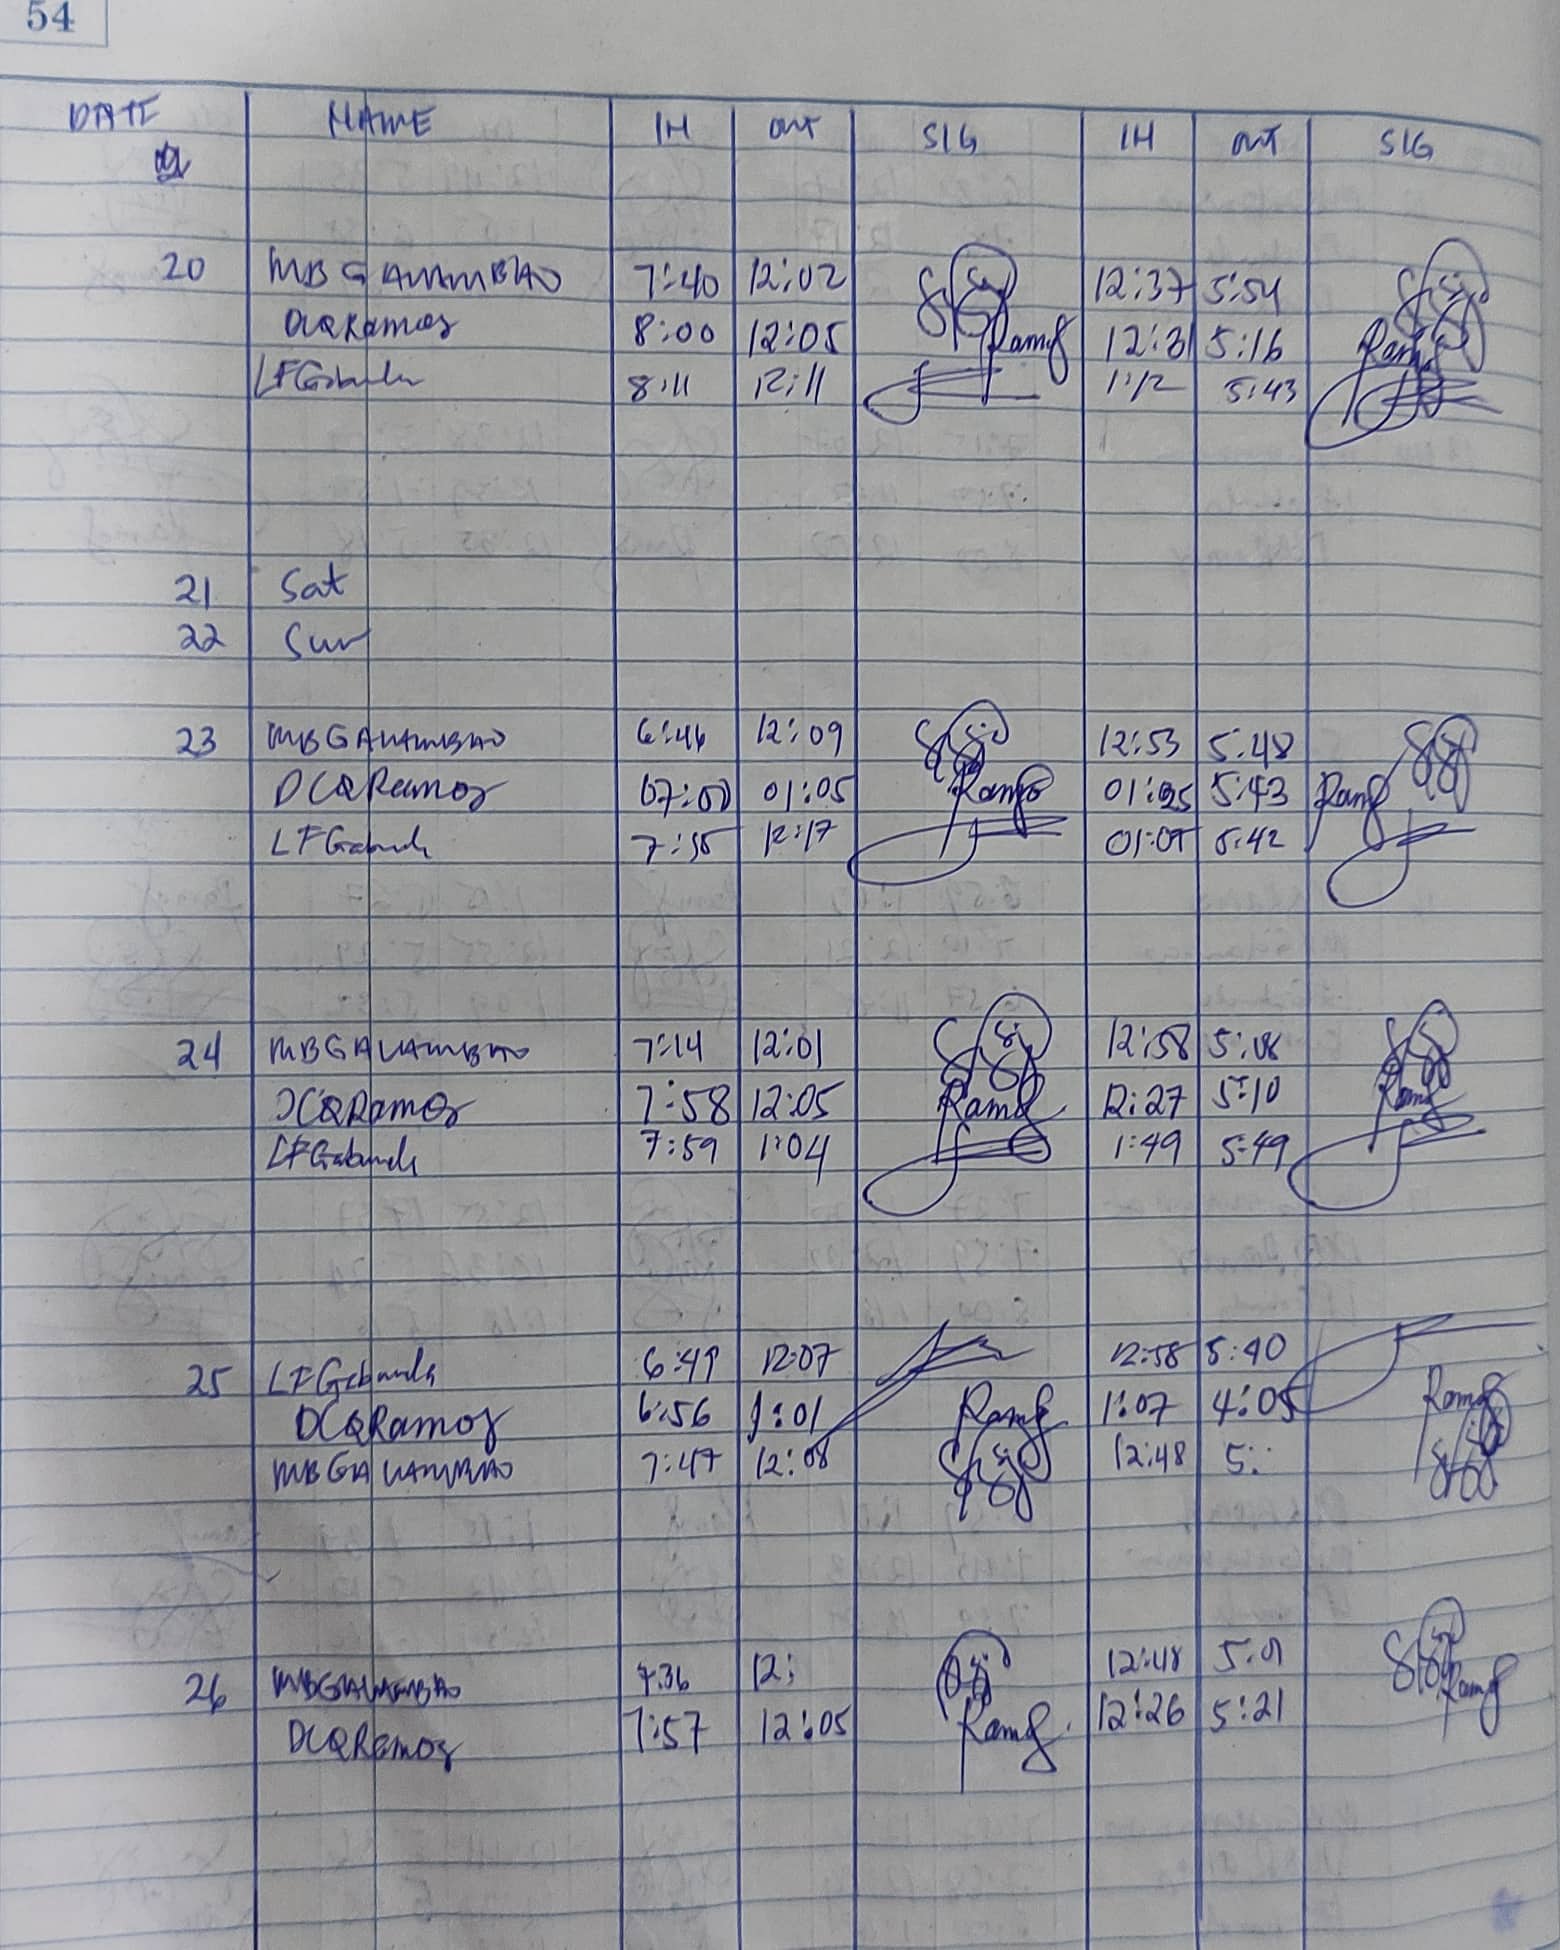 54
DATE NAME IN OUT SIG IN OUT SIG
20 MBGALAMBAO 7:40 12:02 12:37 5:54
DCQRamos 8:00 12:05 Ramos 12:31 5:16 Ramos
LFGabunda 8:11 12:11 1:12 5:43
21 Sat
22 Sun
23 MBGALAMBAO 6:46 12:09 12:53 5:48
DCQRamos 07:00 01:05 Ramos 5:43 Ramos
LFGabunda 7:55 12:17 01:07 5:42
24 MBGALAMBAO 7:14 12:01 12:58 5:08
DCQRamos 7:58 12:05 Ramos 12:27 5:10 Ramos
LFGabunda 7:59 1:04 1:49 5:49
25 LFGabunda 6:49 12:07 12:58 5:40
DCQRamos 6:56 1:01 Ramos 1:07 4:05 Ramos
MBGALAMBAO 7:47 12:08 12:48 5:
26 MBGALAMBAO 7:36 12: 12:48 5:01
DCQRamos 7:57 12:05 Ramos 12:26 5:21 Ramos